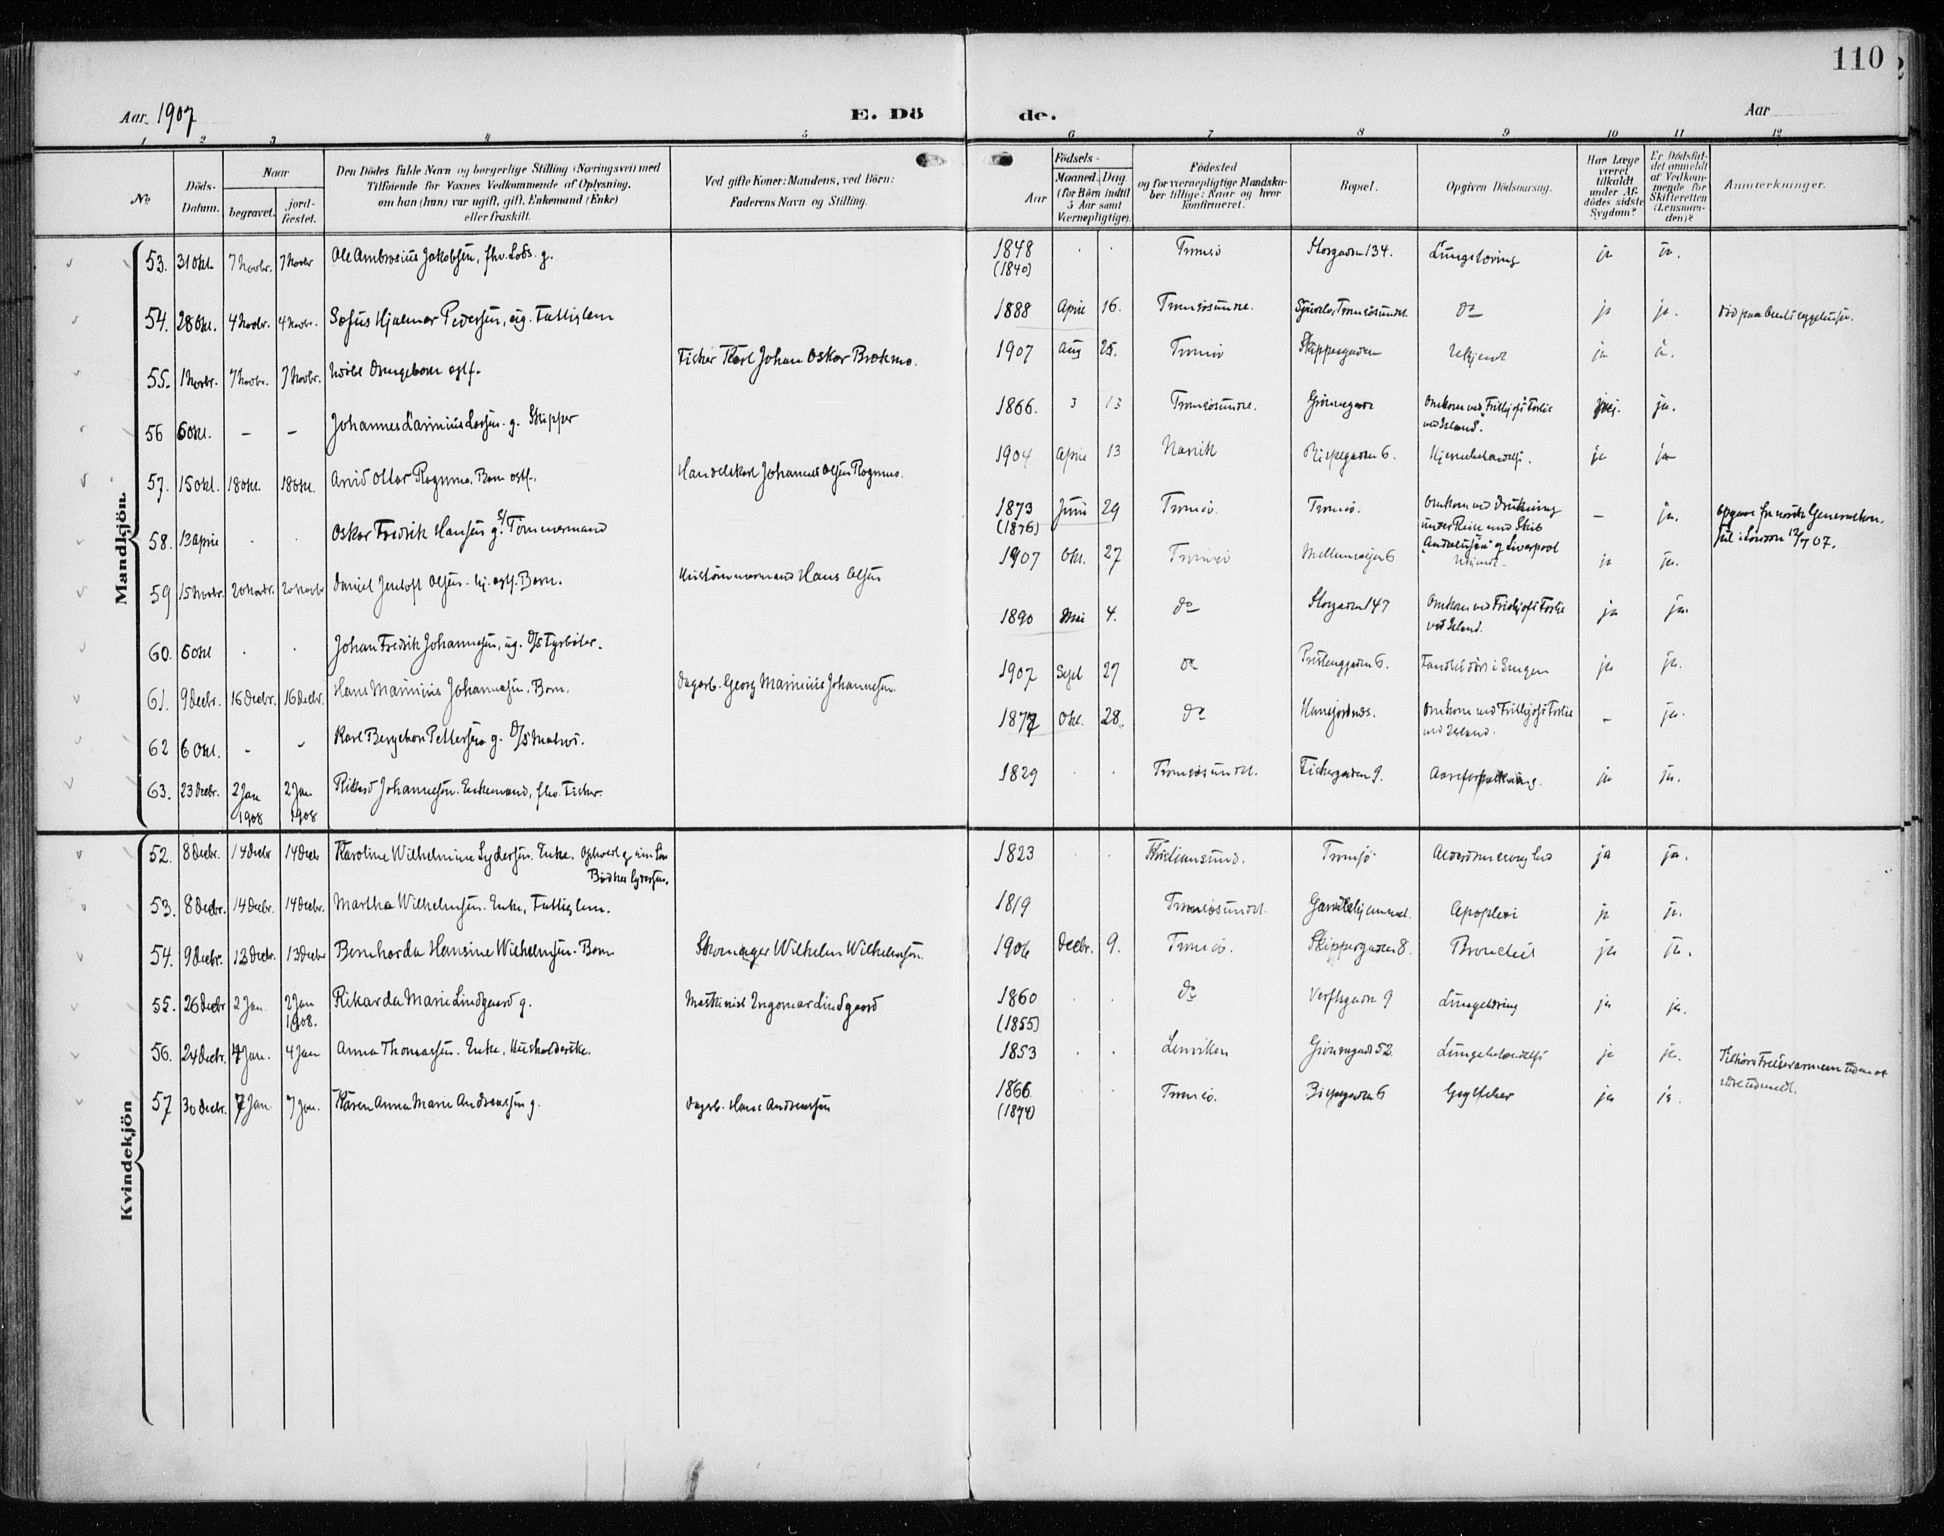 110
Aar 1907 E. Dö de. Aar
1 2 3 4 5 6 7 8 9 10 11 12
No. Döds-Datum. Naar begravet. jordfæstet. Den Dödes fulde Navn og borgerlige Stilling (Næringsvei) med Tilföiende for Voxnes Vedkommende af Oplysning, om han (hun) var ugift, gift, Enkemand (Enke) eller fraskilt. Ved gifte Koner: Mandens, ved Börn: Faderens Navn og Stilling. Födsels- Aar Maaned. Dag (for Börn indtil 5 Aar samt Værnepligtige). Födested og for værnepligtige Mandskaber tillige: Naar og hvor konfirmeret. Bopæl. Opgiven Dödsaarsag. Har Læge været tilkaldt under Afdödes sidste Sygdom? Er Dödsfaldet anmeldt af Vedkommende for Skifteretten (Lensmanden)? Anmærkninger.
Mandkjön.
53. 31 Okt. 7 Novbr. 7 Novbr Ole Ambrosius Jakobsen, fhv. Lods. g. 1848 (1840) Tromsö Storgaden 134. Lungetæring ja ja.
54. 28 Okt. 4 Novbr. 4 Novbr. Sofus Hjalmar Pedersen, ug. Fattiglem 1888 April 16. Tromsösundet. Tromsösundet. do ja ja.
55. 1 Novbr. 7 Novbr. 7 Novbr. Drengebarn egtf. Fisker Karl Johan Oskar Brækmo. 1907 Aug 25. Tromsö Skippergaden Ukjendt ja ja.
56 6 Okt. – – Johannes Larsen. g. Skipper 1866. 3 13 Tromsösundet. Grönnegade Omkom ved "Fridtjofs" Forlis ved Island. nej. ja.
57. 15 Okt. 18 Okt. 18 Okt. Arvid Ottar Ragnmo. Barn egtf. Handelskarl Johannes Olsen Rognmo. 1904 April 13 Narvik Bispegaden 6. ja ja
58. 13 April Oskar Fredrik Hansen g. S/ Tömmermand 1873 (1876) Juni 29 Tromsö. Tromsö. Omkom ved Drukning under Reise med Skib "Andalusien" og Liverpool – ja. Opgave fra norsk Generalkonsul i London 12/7 07.
59 15 Novbr. 20 Novbr. 20 Novbr Daniel Olsen. egtf. Barn. Hustömmermand Hans Olsen 1907 Okt. 27 Tromsö Mellemveien 6 Ukjendt. ja ja.
60. 6 Okt Johan Fredrik Johannesen, ug. D/S Fyrböter. 1890 Mai 4. do Storgaden 147 Omkom ved Fridtjofs Forlis ved Island. ja ja.
61. 9 Decbr. 16 Decbr. 16 Decbr. Hans Marinius Johannesen. Barn. Dagarb. Georg Marinius Johannesen. 1907 Sept 27 do 6. Fandtes död i Sengen ja ja.
62 6 Okt. – – Karl Berghon Pettersen g. D/S Matros. 1877 Okt. 28. do Omkom ved Fridtjofs Forlis ved Island. – ja.
63. 23 Decbr. 2 Jan 1908 2 Jan 1908 Rikard Johannesen. Enkemand, fhv. Fisker. 1829 Tromsösundet. Fiskergaden 9. Aareforkalkning. ja ja.
Kvindekjön
52. 8 Decbr. 14 Decbr 14 Decbr Karoline Wilhelmine Lydersen. Enke. Ophold g. sin Sön Bödker Lydersen. 1823 Kristiansund. Tromsö Alderdomssvaghed ja ja.
53. 8 Decbr. 14 Decbr. 14 Decbr. Martha Wilhelmsen. Enke, Fattiglem. 1819 Tromsösundet. Gamlehjemmet. Apoplexi ja ja.
54. 9 Decbr. 13 Decbr. 13 Decbr Bernharda Hansine Wilhelmsen. Barn Skomager Wilhelm Wilhelmsen. 1906 Decbr. 9. Tromsö. Skippergaden 8. Bronchit ja ja.
55. 26 Decbr 2 Jan. 2 Jan 1908. Rikarda Marie Lindgaard g. Maskinist Ingomar Lindgaard 1860 (1855) do Verftsgaden 9 Lungetæring ja ja.
56. 24 Decbr. 4 Jan. 4 Jan Anna Thomassen. Enke, Husholderske. 1853 Lenviken Grönnegade 52. ja ja. Tilhörte Frelsesarmeen uden at være udmeldt.
57 30 Decbr. 7 Jan. 7 Jan. Karen Anna Marie Andreassen g. Dagarb. Hans Andreassen 1866 (1874) Tromsö. Bispegaden 6 ja ja.